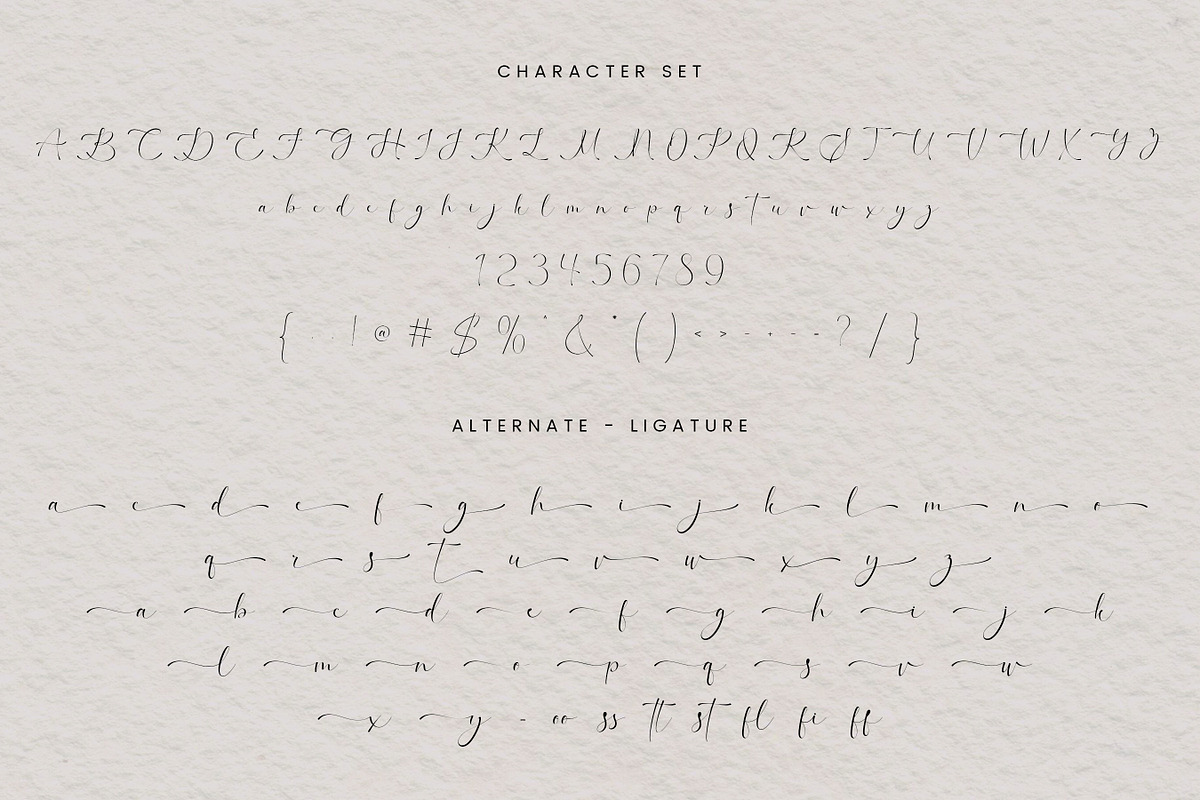 CHARACTER SET
A B C D E F G H I J K L M N O P Q R S T U V W X Y Z
a b c d e f g h i j k l m n o p q r s t u v w x y z
1 2 3 4 5 6 7 8 9
{ . . ! @ # $ % ˆ & * ( ) < > - + - - ? / }
ALTERNATE - LIGATURE
a c d e f g h i j k l m n o
q r s t u v w x y z
a b c d e f g h i j k
l m n o p q s v w
x y - oo ss tt st fl fi ff